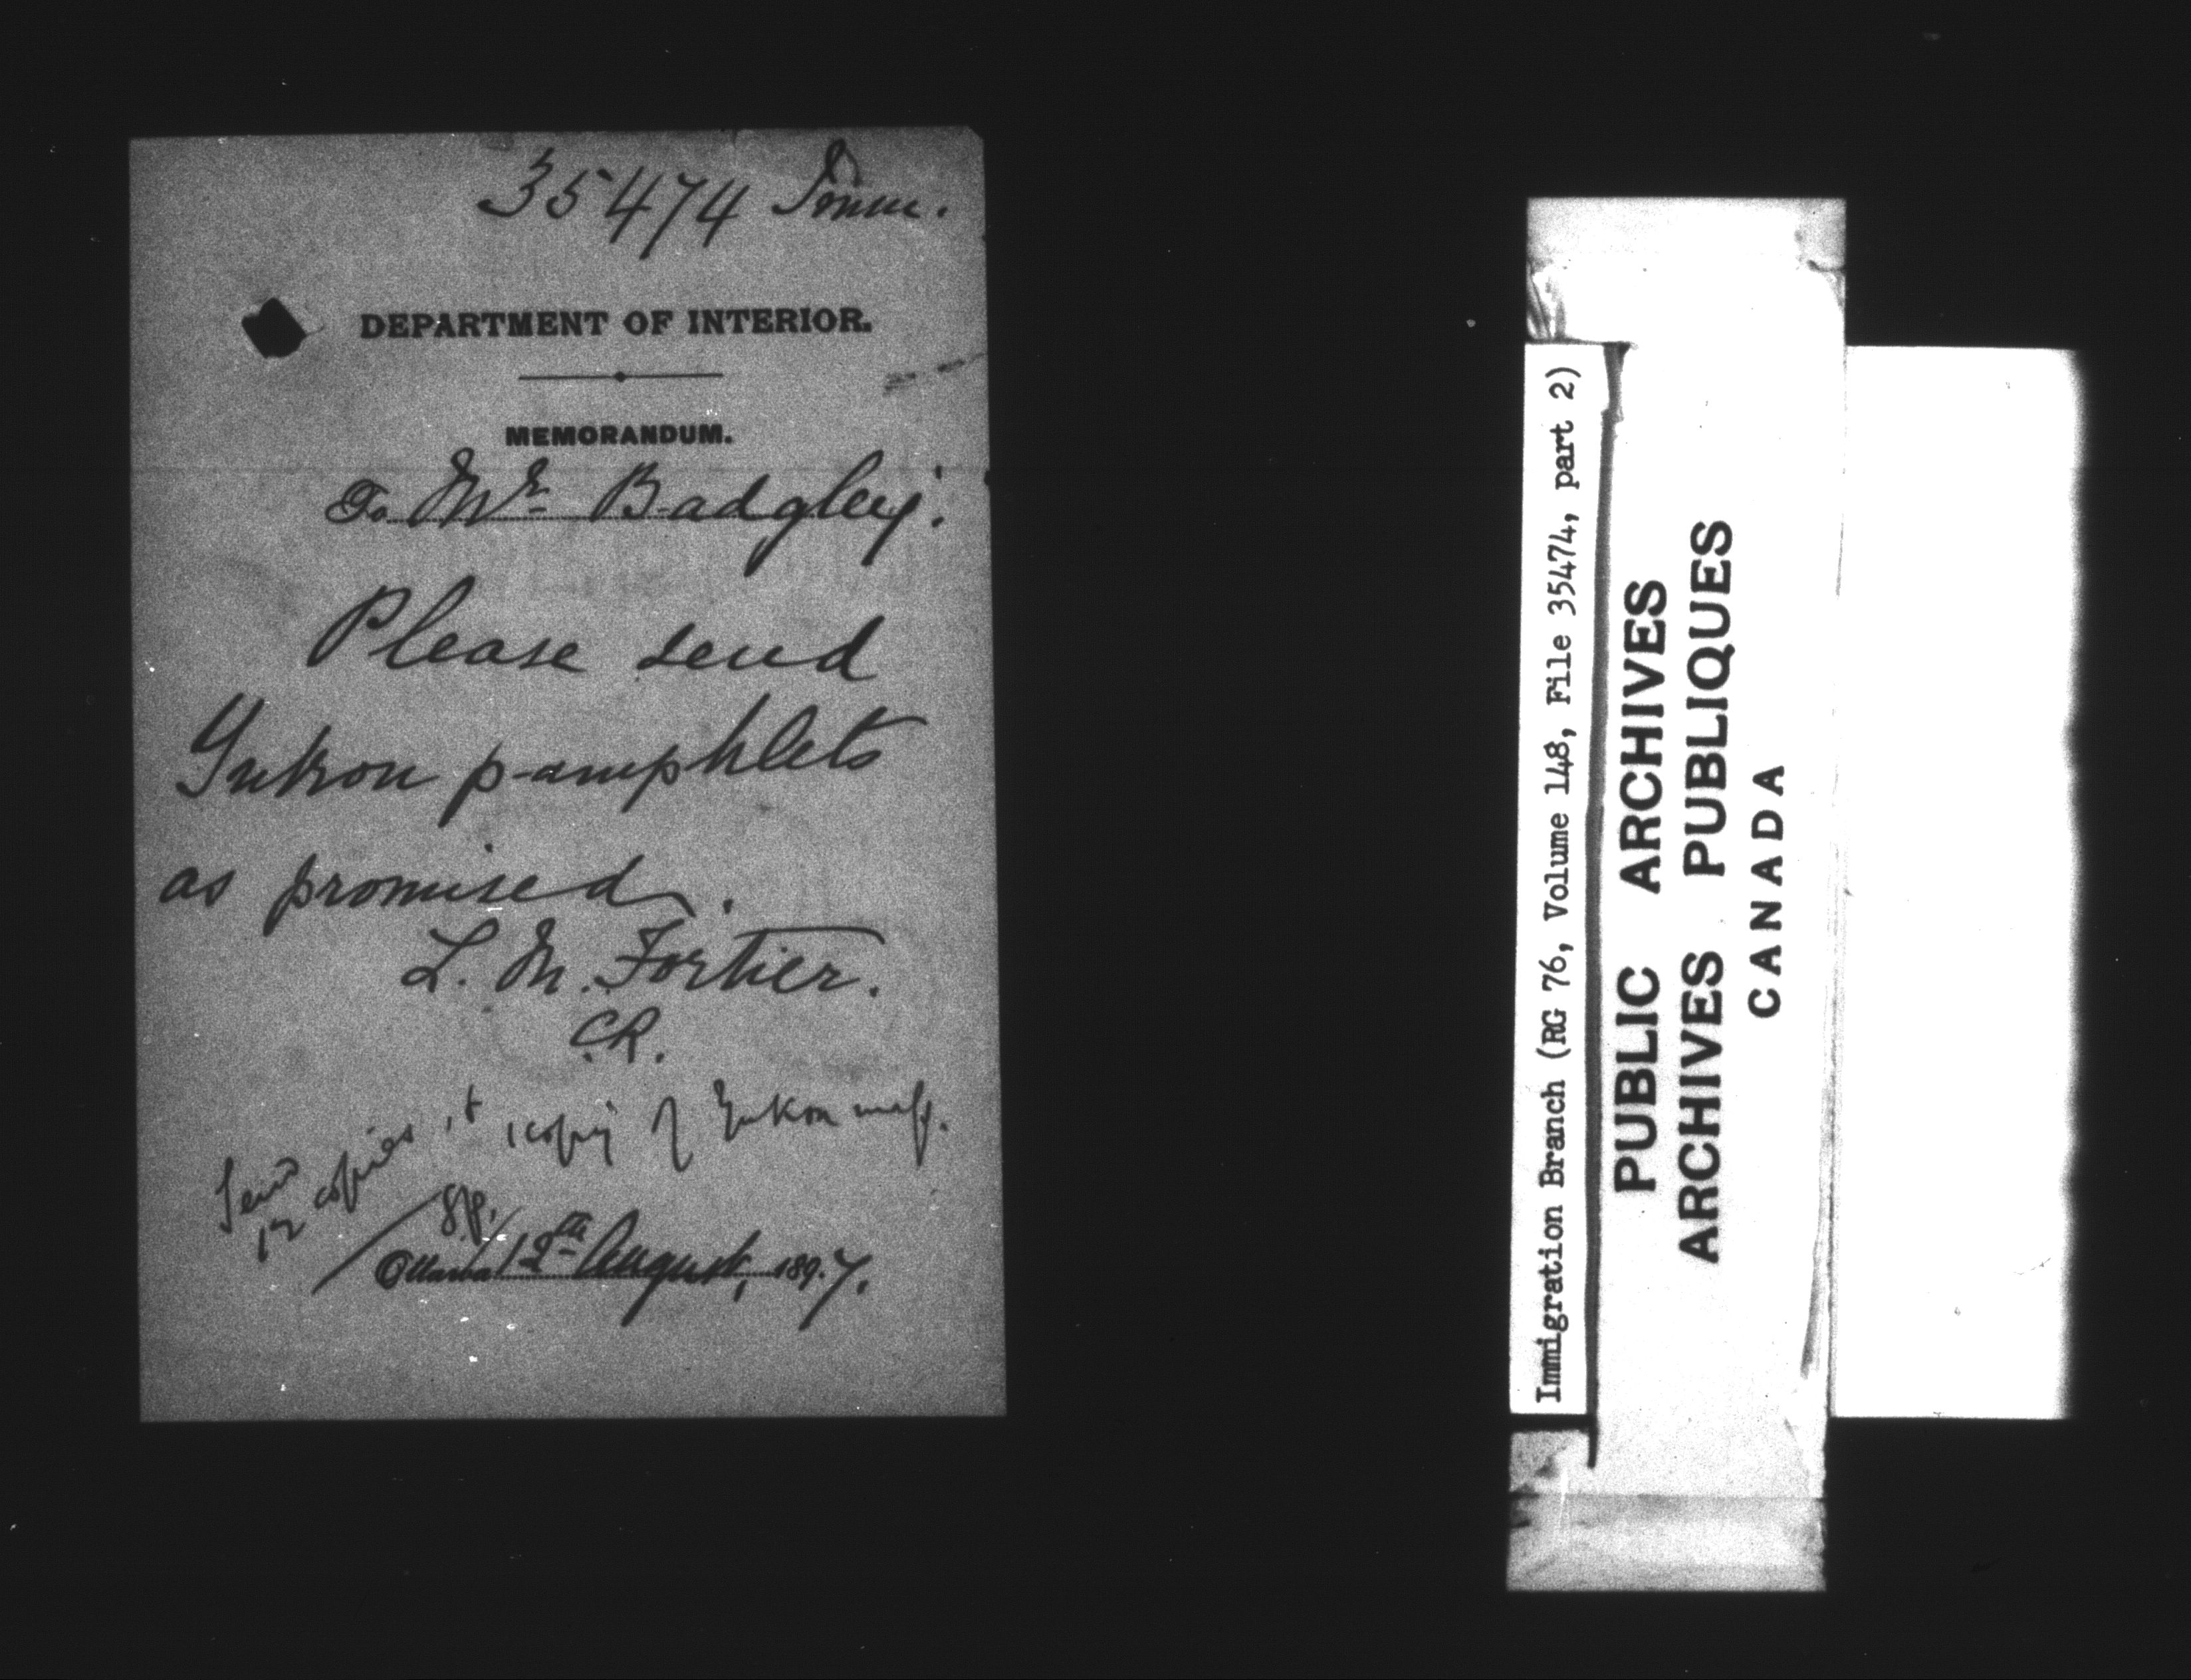 35474 Imm.
DEPARTMENT OF INTERIOR.
MEMORANDUM.
To Mr Badgley.
Please send
Yukon pamphlets
as promised.
L. M. Fortier.
C.R.
Send 12 copies & 1 copy of Yukon map.
Ottawa 12th August, 1897.
Immigration Branch (RG 76, Volume 148, File 35474, part 2)
PUBLIC ARCHIVES
ARCHIVES PUBLIQUES
CANADA